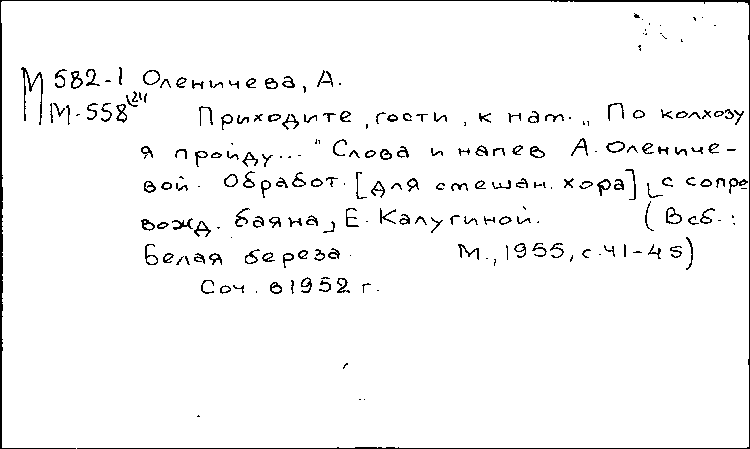 М 582-1 Оленичева, А.
М-558
Приходите, гости, к нам. „По колхозу
я пройду..." Слова и напев А. Олениче-
вой. Обработ. [для смешан. хора], с сопро
вожд. баяна, Е. Калугиной. (В сб.:
Белая береза. М., 1955, с. 41-45)
Соч. в 1952 г.